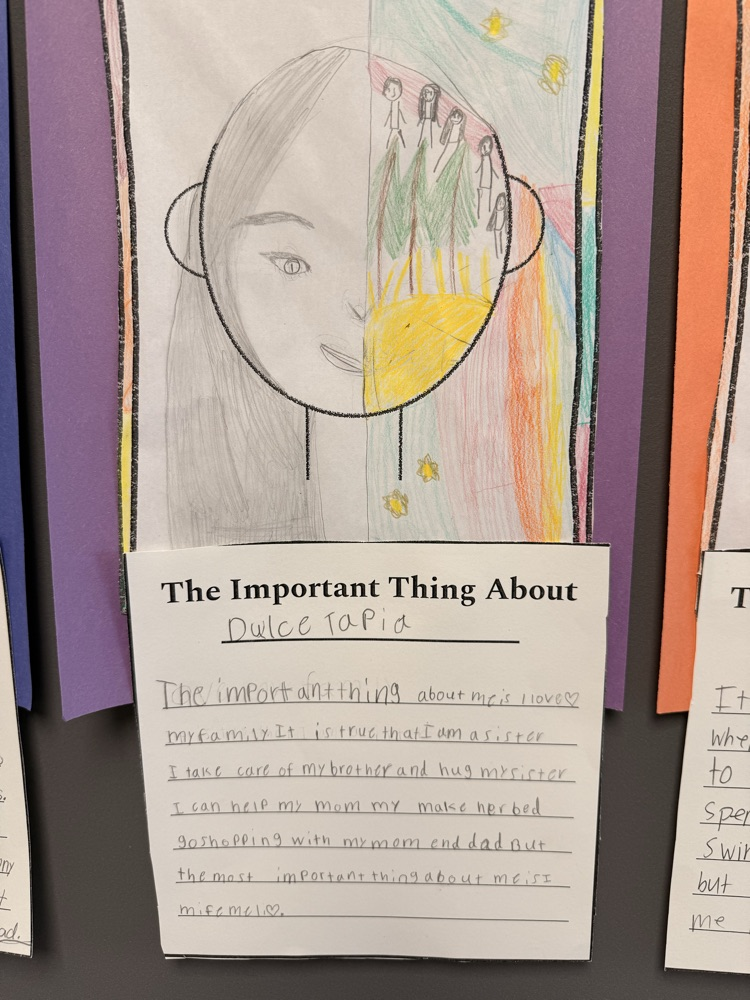 The Important Thing About
Dulce Tapia
The important thing about me is I love♡
my family It is true that I am a sister
I take care of my brother and hug my sister
I can help my mom my make her bed
go shopping with my mom end dad But
the most important thing about me is I
mi femeli♡.
ny
ad.
T
It
whe
to
sper
swin
but
me